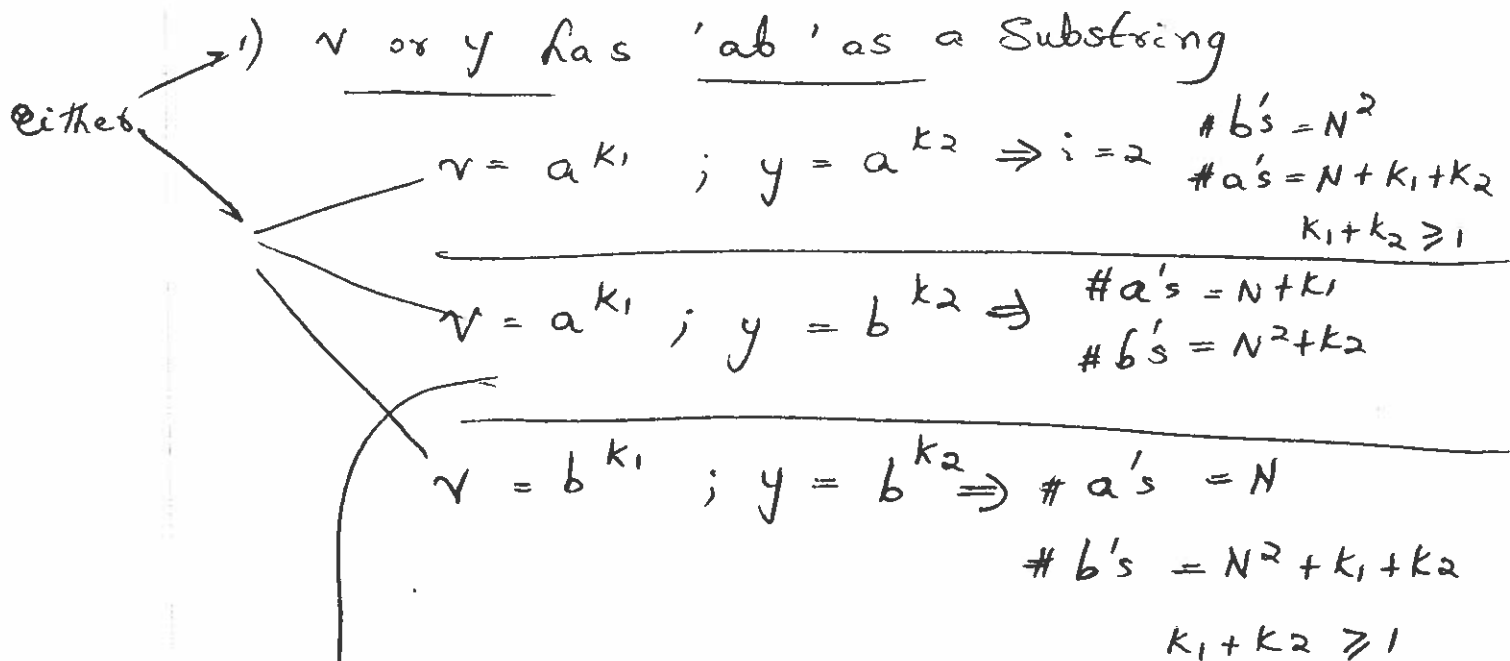 1) v or y has 'ab' as a Substring
either
v = a^{k_1} ; y = a^{k_2} ⇒ i = 2
# b's = N^2
# a's = N + k_1 + k_2
k_1 + k_2 ≥ 1
v = a^{k_1} ; y = b^{k_2} ⇒
# a's = N + k_1
# b's = N^2 + k_2
v = b^{k_1} ; y = b^{k_2} ⇒ # a's = N
# b's = N^2 + k_1 + k_2
k_1 + k_2 ≥ 1